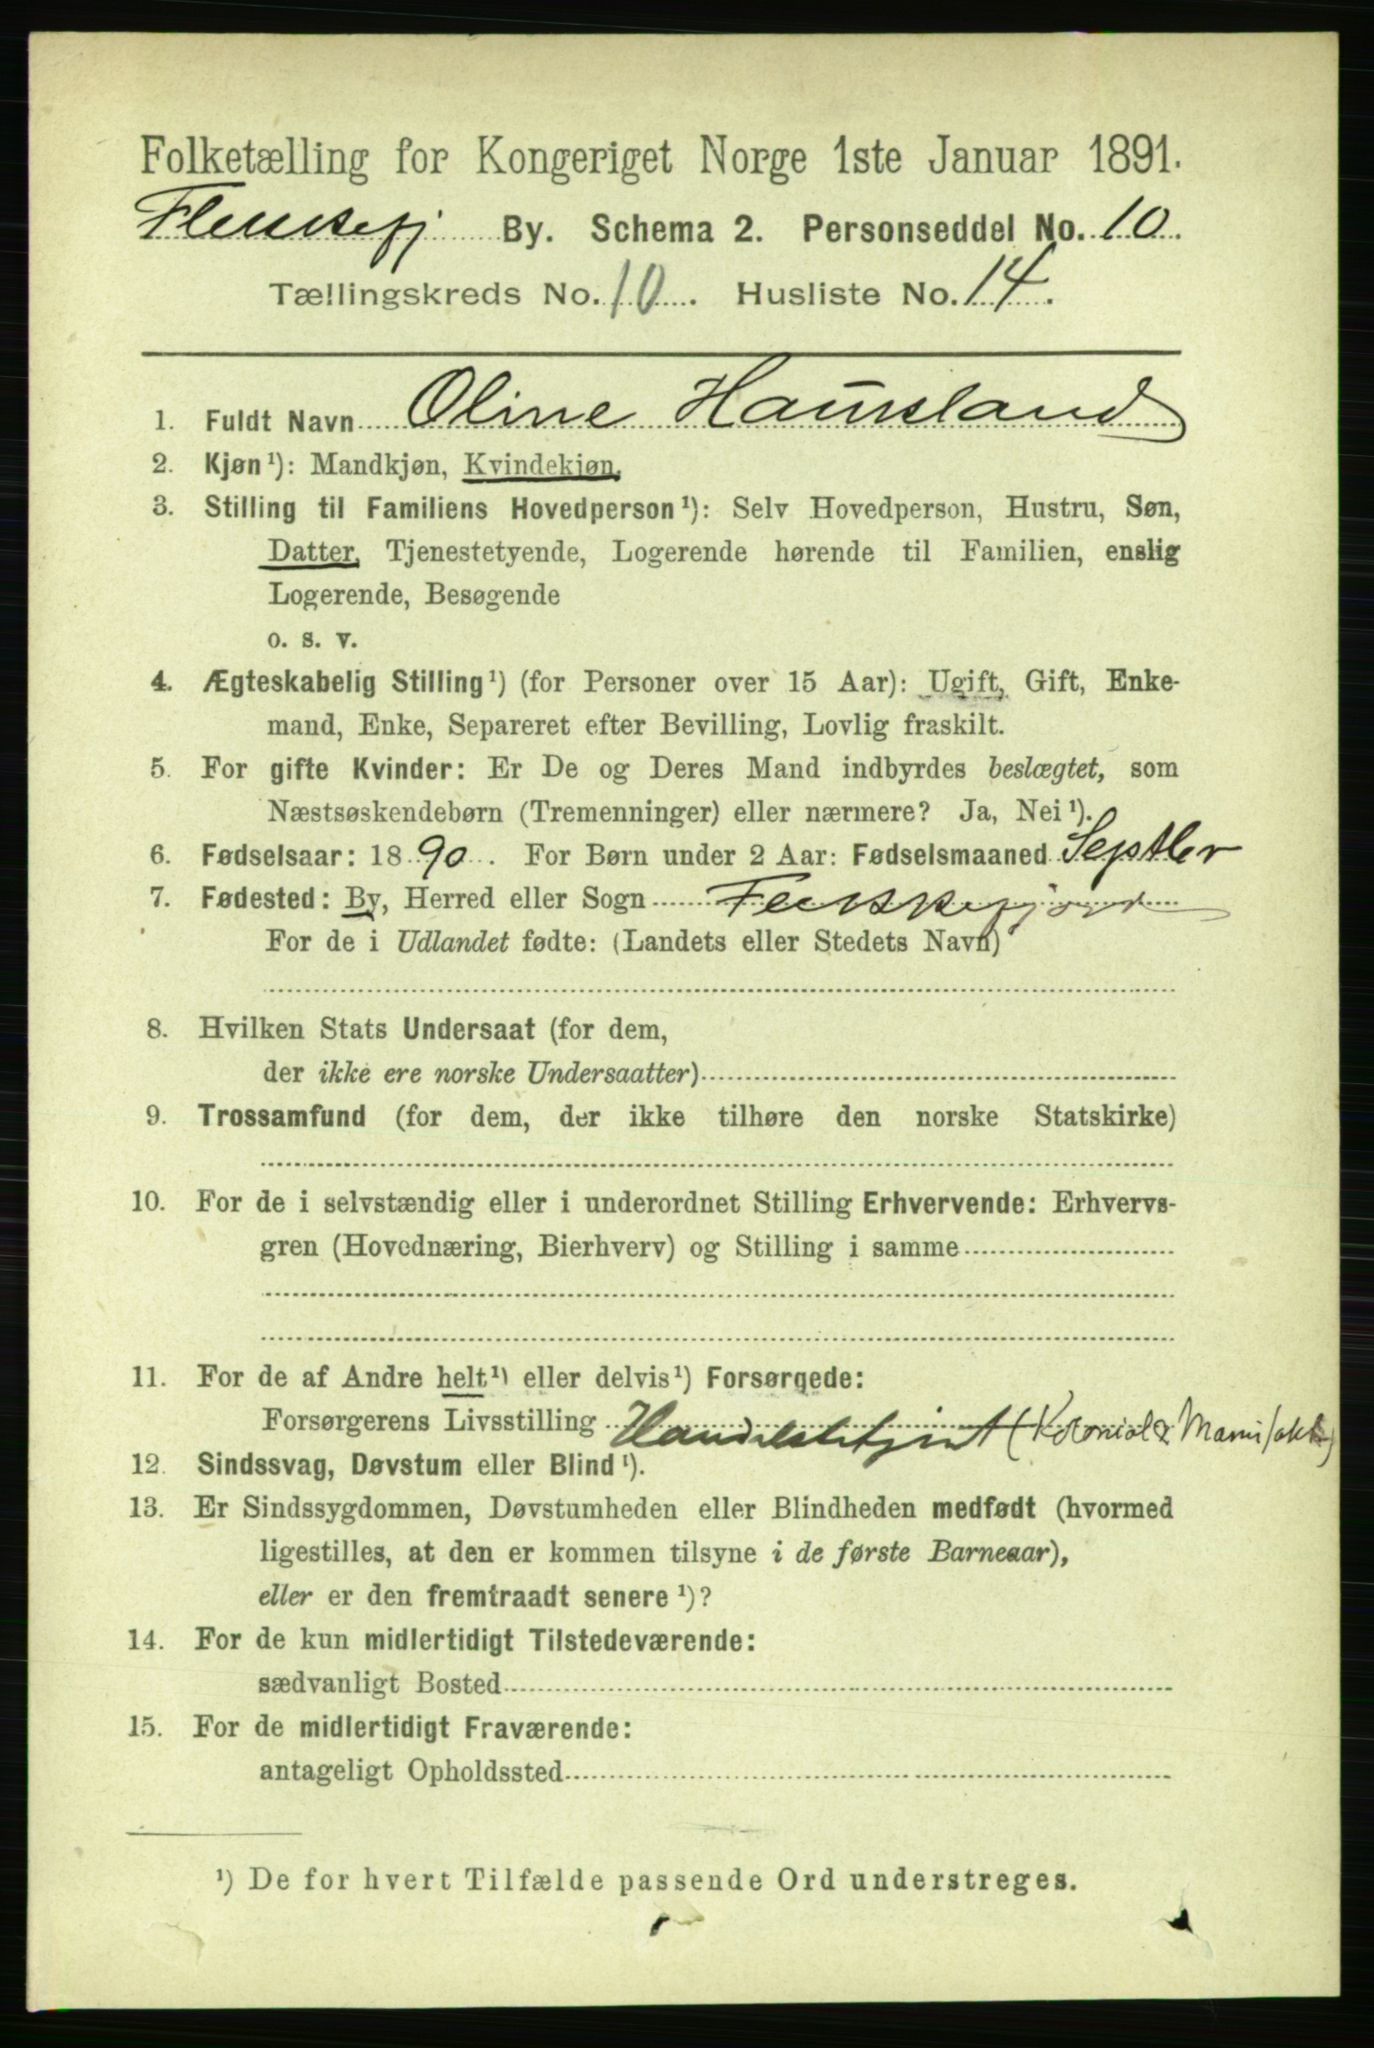 Folketælling for Kongeriget Norge 1ste Januar 1891.
Flekkefj By. Schema 2. Personseddel No. 10.
Tællingskreds No. 10. Husliste No. 14.
1. Fuldt Navn Oline Haugland
2. Kjøn ¹): Mandkjøn, Kvindekjøn.
3. Stilling til Familiens Hovedperson ¹): Selv Hovedperson, Hustru, Søn,
Datter, Tjenestetyende, Logerende hørende til Familien, enslig
Logerende, Besøgende
o. s. v.
4. Ægteskabelig Stilling ¹) (for Personer over 15 Aar): Ugift, Gift, Enke-
mand, Enke, Separeret efter Bevilling, Lovlig fraskilt.
5. For gifte Kvinder: Er De og Deres Mand indbyrdes beslægtet, som
Næstsøskendebørn (Tremenninger) eller nærmere? Ja, Nei ¹).
6. Fødselsaar: 1890. For Børn under 2 Aar: Fødselsmaaned Septbr
7. Fødested: By, Herred eller Sogn Flekkefjord
For de i Udlandet fødte: (Landets eller Stedets Navn)
8. Hvilken Stats Undersaat (for dem,
der ikke ere norske Undersaatter)
9. Trossamfund (for dem, der ikke tilhøre den norske Statskirke)
10. For de i selvstændig eller i underordnet Stilling Erhvervende: Erhvervs-
gren (Hovednæring, Bierhverv) og Stilling i samme
11. For de af Andre helt ¹) eller delvis ¹) Forsørgede:
Forsørgerens Livsstilling Handelsbetjent (Kolonial &
12. Sindssvag, Døvstum eller Blind ¹).
13. Er Sindssygdommen, Døvstumheden eller Blindheden medfødt (hvormed
ligestilles, at den er kommen tilsyne i de første Barneaar),
eller er den fremtraadt senere ¹)?
14. For de kun midlertidigt Tilstedeværende:
sædvanligt Bosted
15. For de midlertidigt Fraværende:
antageligt Opholdssted
¹) De for hvert Tilfælde passende Ord understreges.